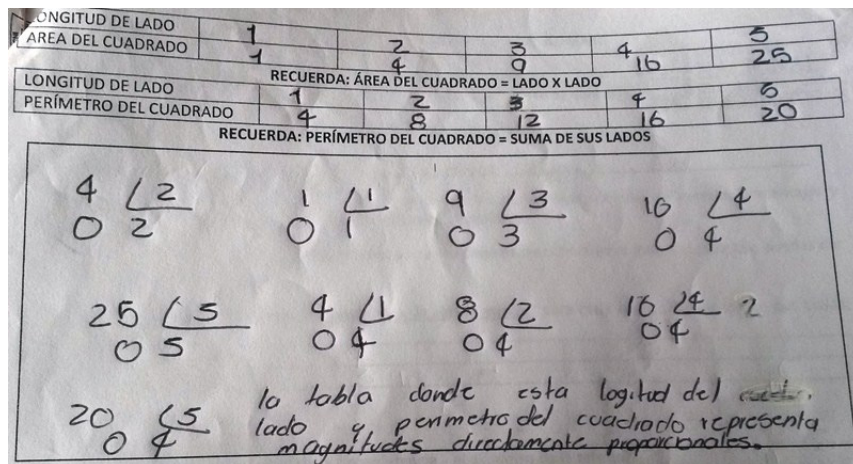 LONGITUD DE LADO 1 2 3 4 5
AREA DEL CUADRADO 1 4 9 16 25
RECUERDA: ÁREA DEL CUADRADO = LADO X LADO
LONGITUD DE LADO 1 2 3 4 5
PERÍMETRO DEL CUADRADO 4 8 12 16 20
RECUERDA: PERÍMETRO DEL CUADRADO = SUMA DE SUS LADOS
4 2 1 1 9 3 16 4
0 2 0 1 0 3 0 4
25 5 4 1 8 2 16 4 2
0 5 0 4 0 4 0 4
20 5
0 4
la tabla donde esta logitud del
lado y perimetro del cuadrado representa
magnitudes directamente proporcionales.